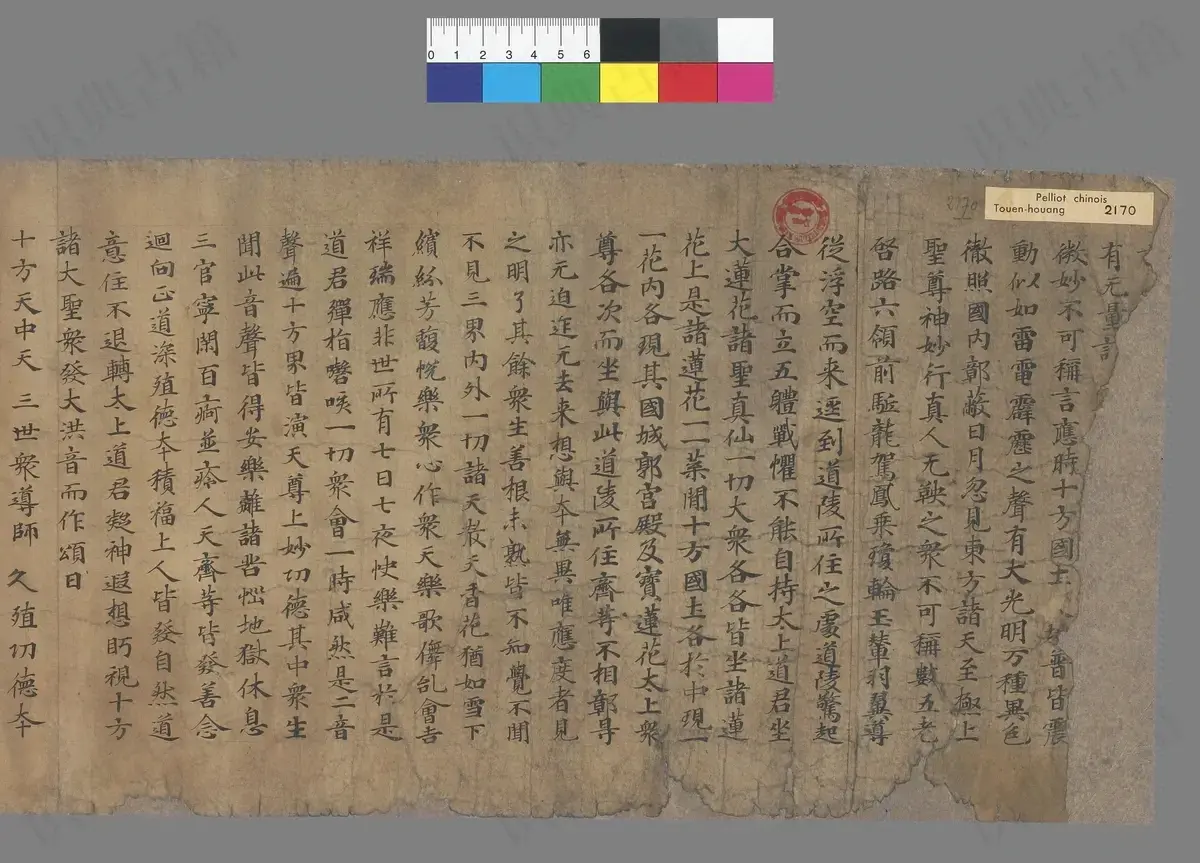 0 1 2 3 4 5 6
Pelliot chinois
Touen-houang 2170
2170
有元量
微妙不可稱言應時十方國土普皆震
動似如雷電霹靂之聲有大光明万種異色
徹照國内鄣蔽日月忽見東方諸天至極上
聖尊神妙行真人无鞅之衆不可稱數五老
啓路六領前駈龍駕鳳乘瓊輪玉輦羽翼尊
從浮空而来逕到道陵所住之處道陵驚起
合掌而立五體戰懼不能自持太上道君坐
大蓮花諸聖真仙一切大衆各各皆坐諸蓮
花上是諸蓮花一一葉間十方國土各於中現一
一花内各現其國城郭宮殿及寶蓮花太上衆
尊各次而坐與此道陵所住齊等不相鄣㝵
亦元迫迮元去来想與夲無異唯應度者見
之明了其餘衆生善根未熟皆不知覺不聞
不見三界内外一切諸天散天香花猶如雪下
繽紛芳馥恱樂衆心作衆天樂歌儛乱會吉
祥瑞應非世所有七日七夜快樂難言於是
道君彈指謦咳一切衆會一時咸然是二音
聲遍十方界皆演天尊上妙功德其中衆生
聞此音聲皆得安樂離諸苦惱地獄休息
三官寧閑百痾並痊人天齊等皆發善念
迴向正道深殖德夲積福上人皆發自然道
意住不退轉太上道君凝神遐想眄視十方
諸大聖衆發大洪音而作頌曰
十方天中天 三世衆導師 久殖功德夲